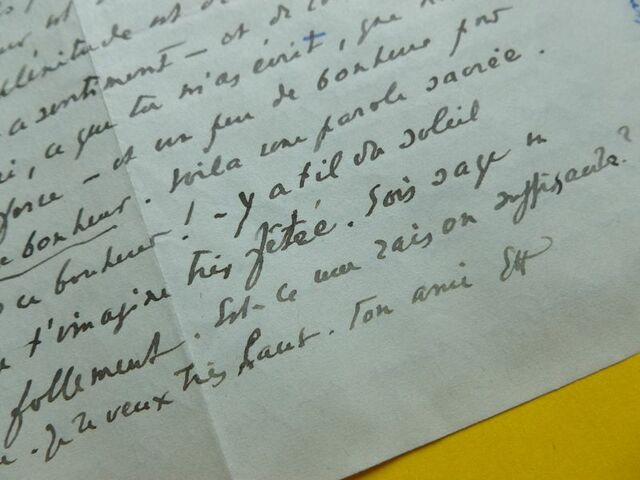 est
plénitude est
sentiment - et de
, ce que tu m'as écrit, que
force - et un peu de bonheur pour
bonheur. Voilà une parole sacrée.
ce bonheur! - Y a til du soleil
t'imagine très fêtée. Sois sage
follement. Est-ce une raison suffisante?
. Je te veux très haut. Ton ami